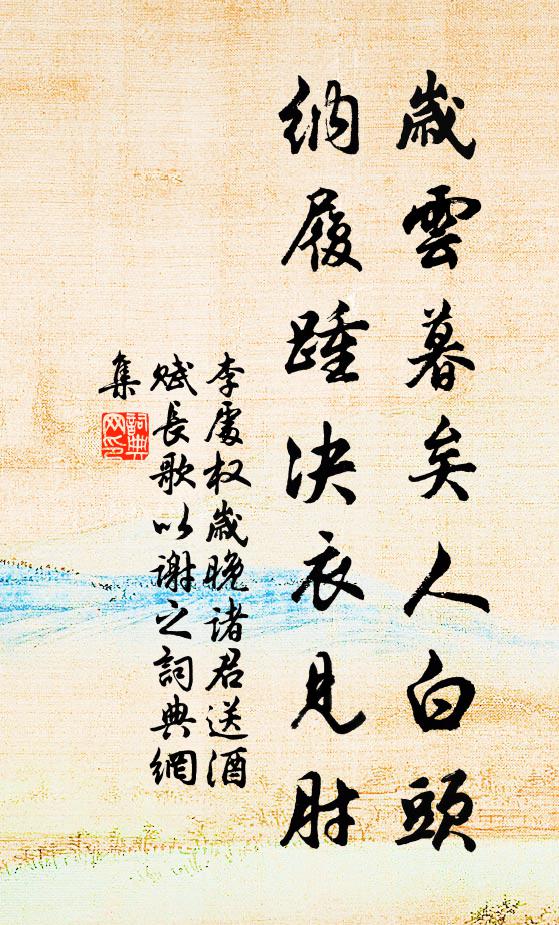 歲雲暮矣人白頭
納履踵決衣見肘
李處权歲晚諸君送酒
賦長歌以謝之詞典網
集
詞典
网印